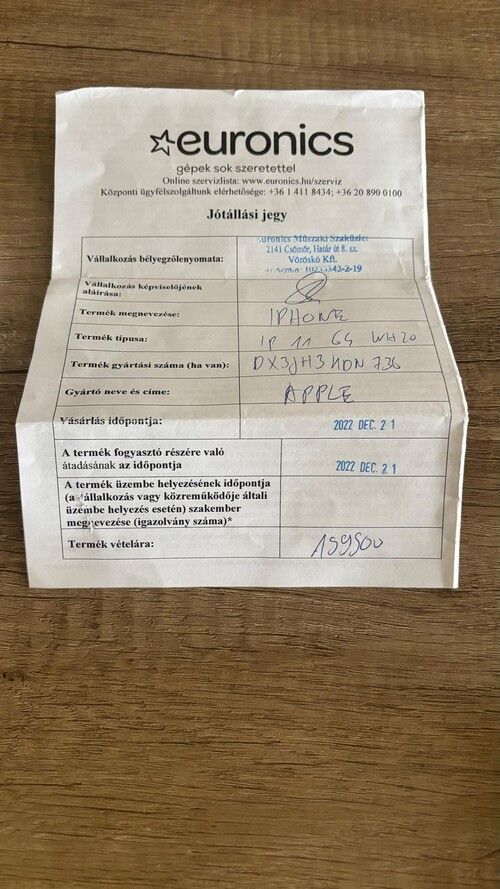 euronics
gépek sok szeretettel
Online szervizlista: www.euronics.hu/szerviz
Központi ügyfélszolgáltunk elérhetősége: +36 1 411 8434; +36 20 890 0100
Jótállási jegy
Vállalkozás bélyegzőlenyomata:
Euronics Műszaki Szaküzlet
2141 Csömör, Határ út 8. sz.
Vöröskő Kft.
Vállalkozás képviselőjének
aláírása:
Termék megnevezése: IPHONE
Termék típusa: IP 11 64 WH20
Termék gyártási száma (ha van):
Gyártó neve és címe: APPLE
Vásárlás időpontja: 2022 DEC. 21
A termék fogyasztó részére való
átadásának az időpontja 2022 DEC. 21
A termék üzembe helyezésének időpontja
(a vállalkozás vagy közreműködője általi
üzembe helyezés esetén) szakember
megnevezése (igazolvány száma)*
Termék vételára: 159900